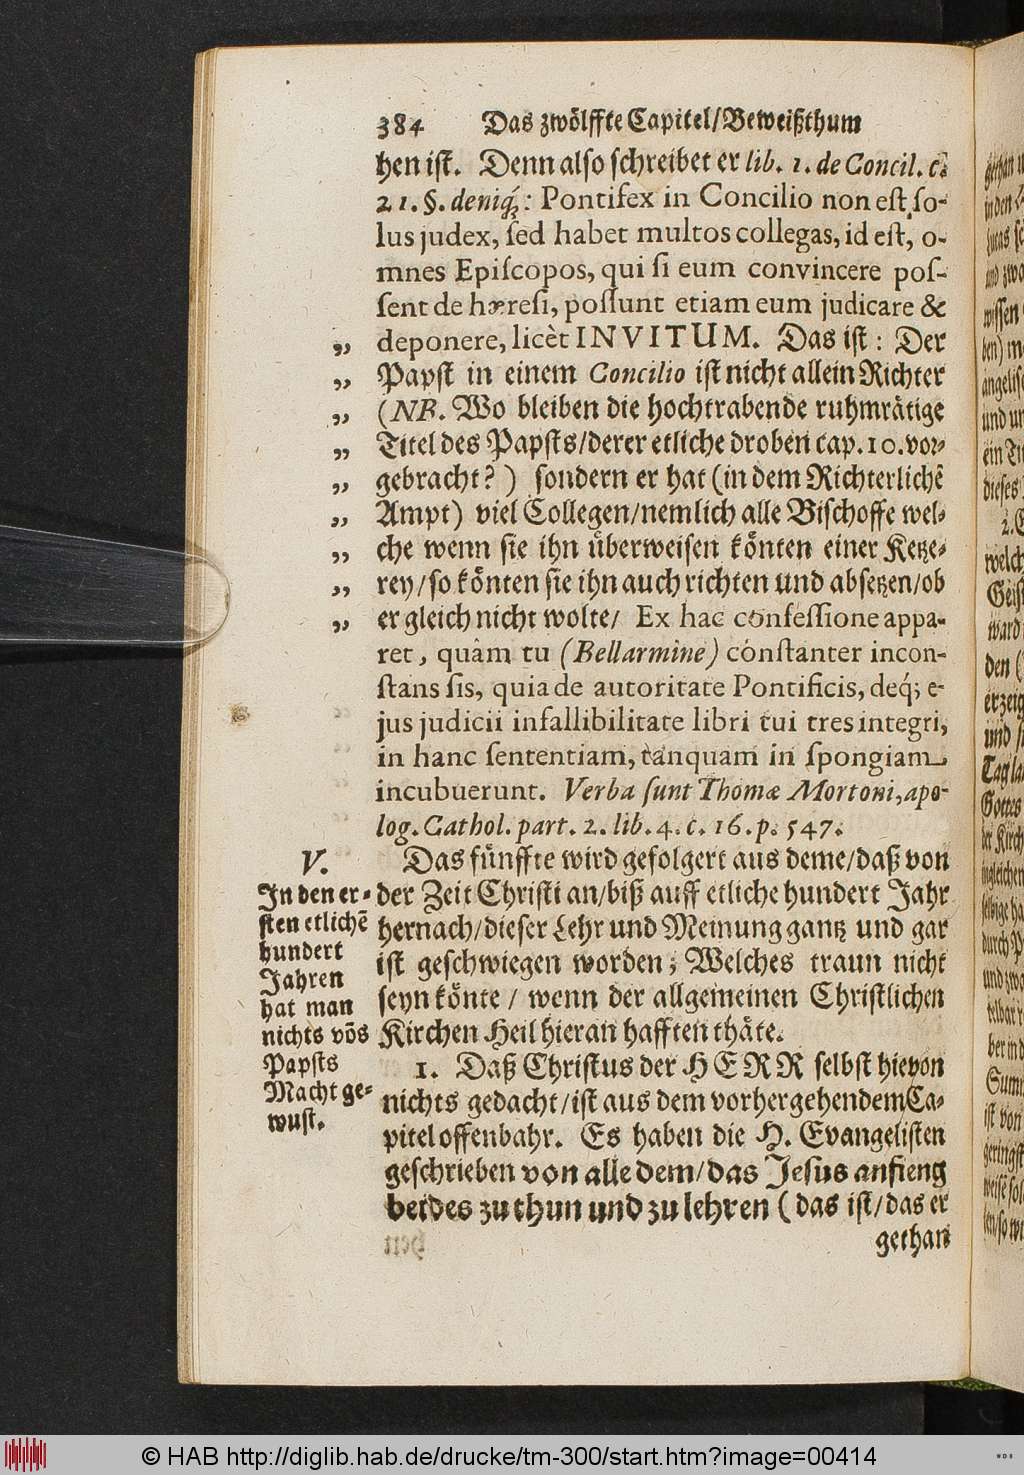 384 Das zwölffte Capitel/Beweißthum
hen ist. Denn also schreibet er lib. 1. de Concil. c.
21. §. deniq́; : Pontifex in Concilio non est so-
lus judex, sed habet multos collegas, id est, o-
mnes Episcopos, qui si eum convincere pos-
sent de hæresi, possunt etiam eum judicare &
„ deponere, licèt INVITUM. Das ist: Der
„ Papst in einem Concilio ist nicht allein Richter
„ (NB. Wo bleiben die hochtrabende ruhmrätige
„ Titel des Papsts/derer etliche droben cap. 10. vor-
„ gebracht?) sondern er hat (in dem Richterlichẽ
„ Ampt) viel Collegen/nemlich alle Bischoffe wel-
„ che wenn sie ihn überweisen könten einer Ketze-
„ rey/so könten sie ihn auch richten und absetzen/ob
„ er gleich nicht wolte/ Ex hac confessione appa-
ret, quàm tu (Bellarmine) constanter incon-
stans sis, quia de autoritate Pontificis, deq́; e-
jus judicii infallibilitate libri tui tres integri,
in hanc sententiam, tanquam in spongiam
incubuerunt. Verba sunt Thomæ Mortoni, apo-
log. Cathol. part. 2. lib. 4. c. 16. p. 547.
V.
In den er-
sten etlichẽ
hundert
Jahren
hat man
nichts võs
Papsts
Macht ge-
wust.
Das fünffte wird gefolgert aus deme/daß von
der Zeit Christi an/biß auff etliche hundert Jahr
hernach/dieser Lehr und Meinung gantz und gar
ist geschwiegen worden; Welches traun nicht
seyn könte / wenn der allgemeinen Christlichen
Kirchen Heil hieran hafften thäte.
1. Daß Christus der HERR selbst hievon
nichts gedacht/ist aus dem vorhergehendem Ca-
pitel offenbahr. Es haben die H. Evangelisten
geschrieben von alle dem/das Jesus anfieng
beides zu thun und zu lehren (das ist/das er
gethan
© HAB http://diglib.hab.de/drucke/tm-300/start.htm?image=00414